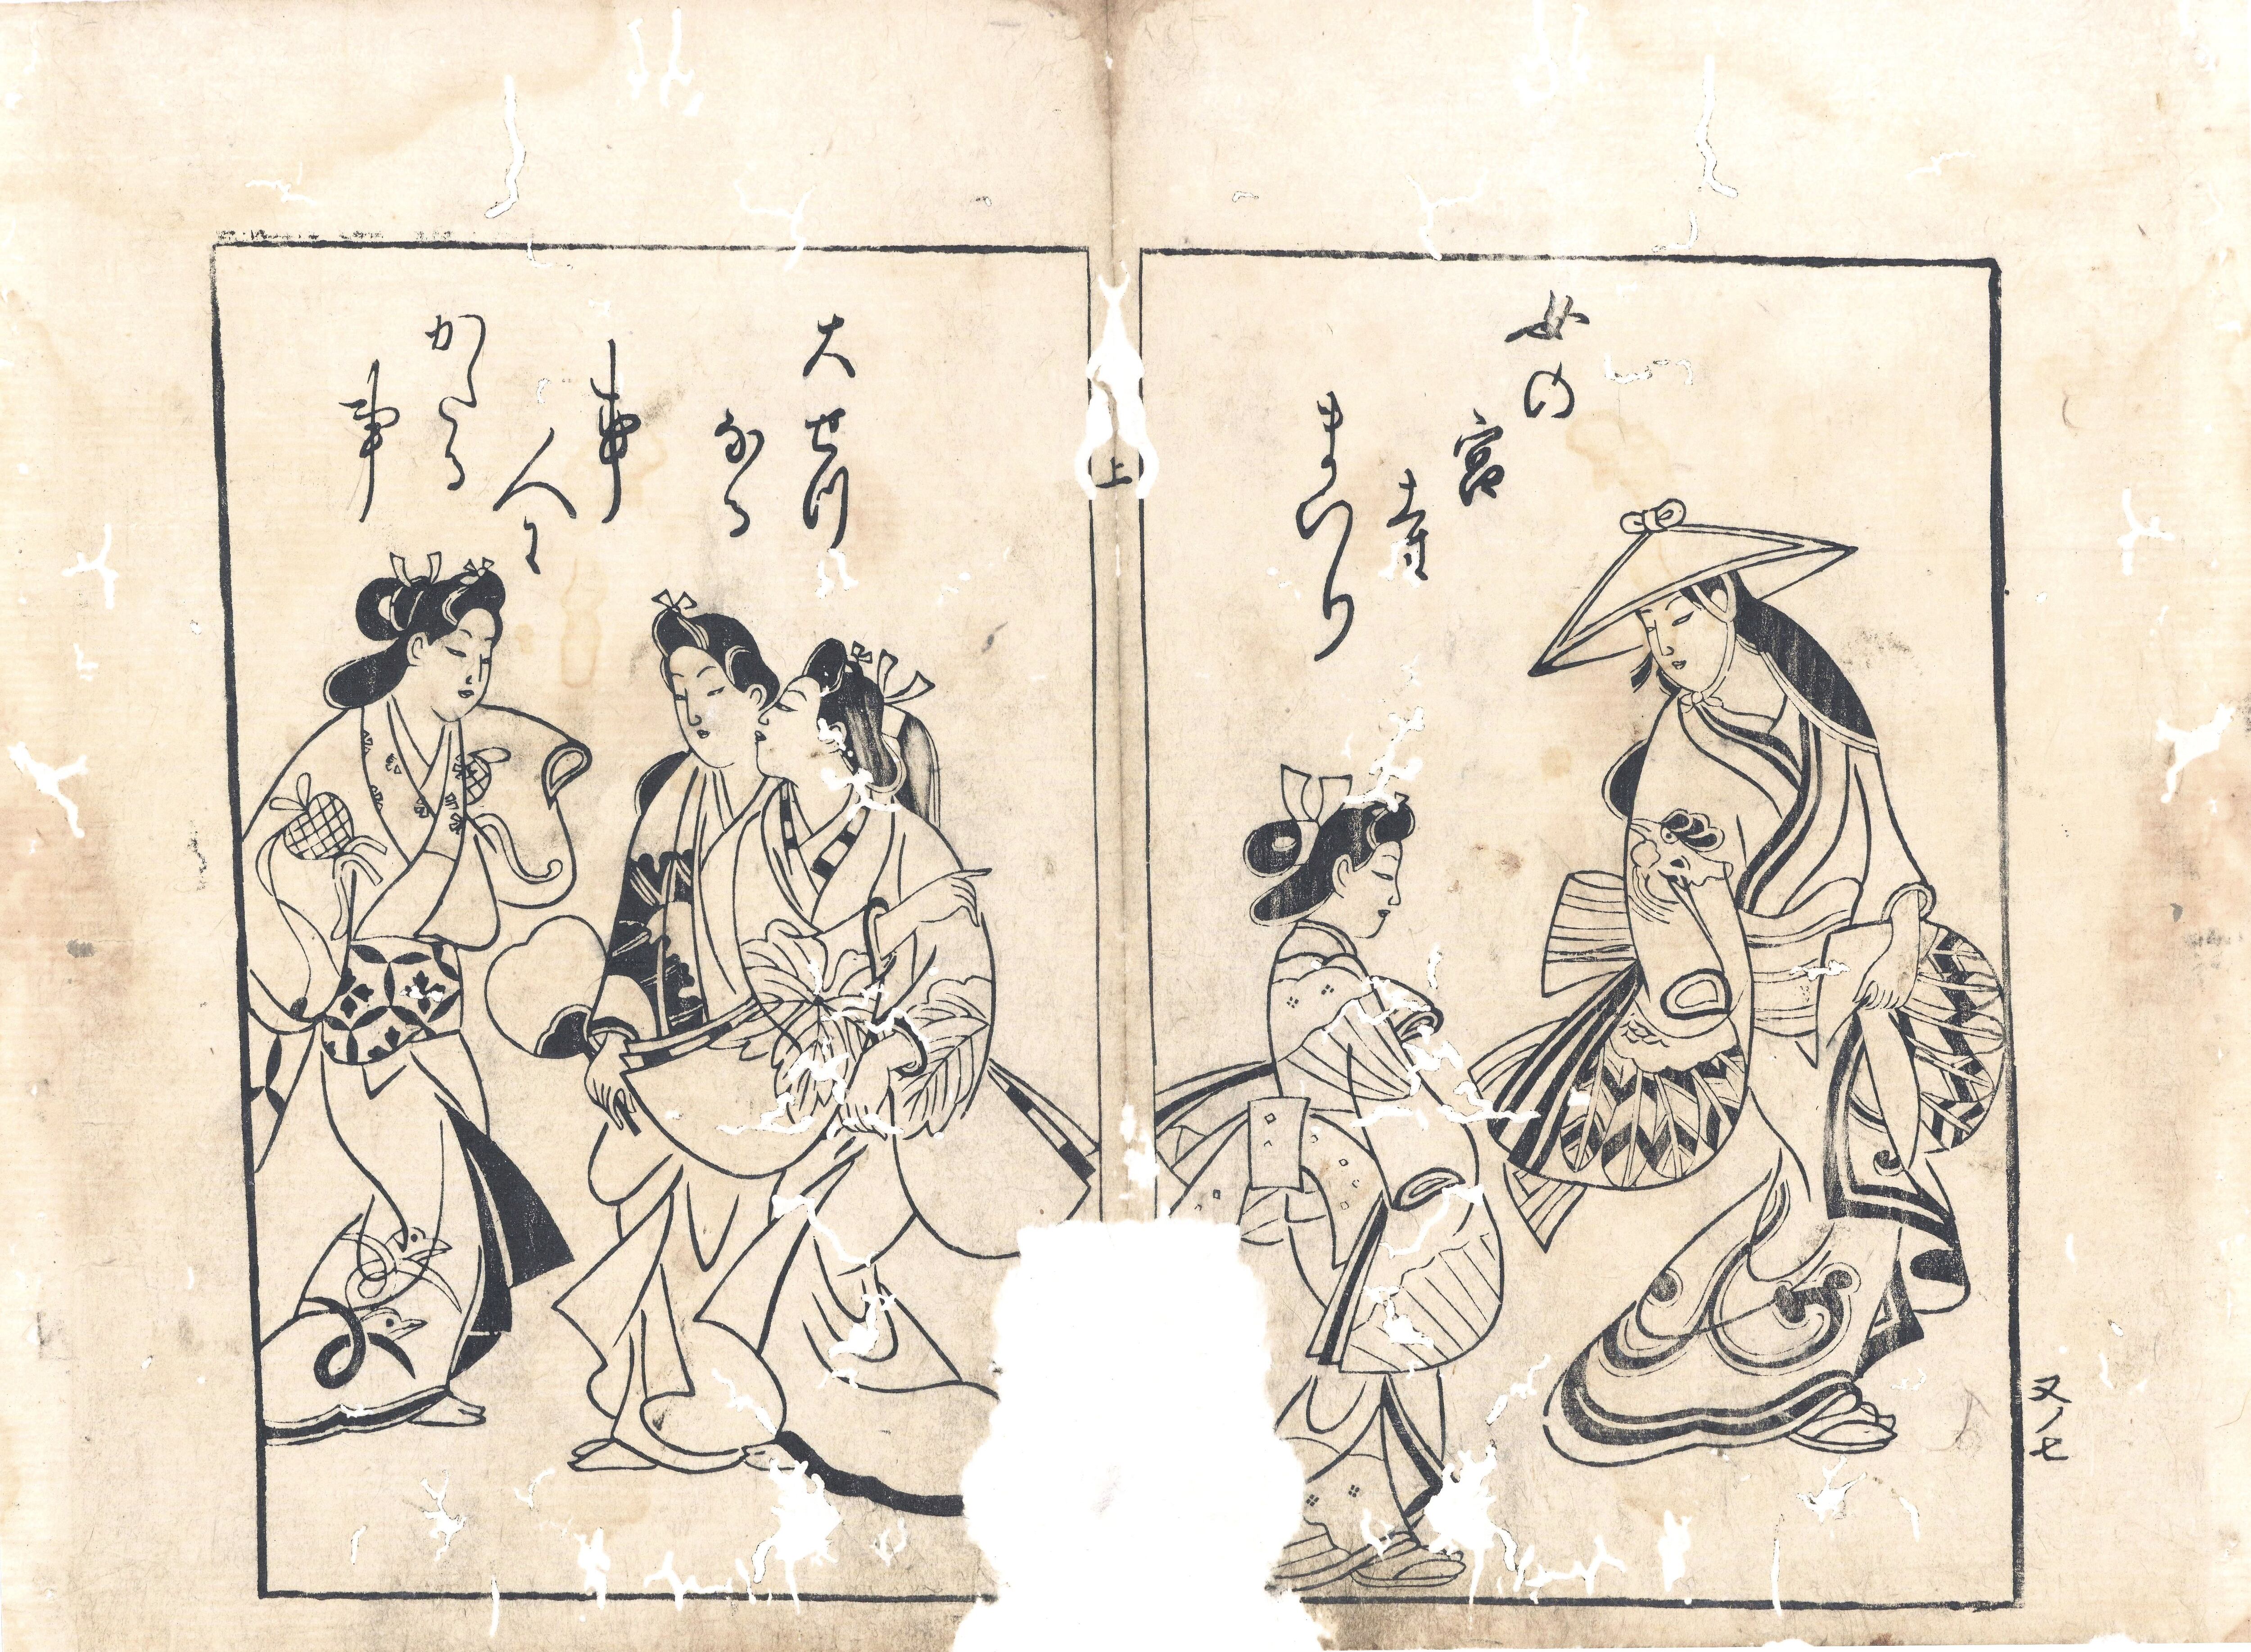 女の
宮
寺
まいり
上
大せつ
なる
事
人に
かたる
事
又ノ七